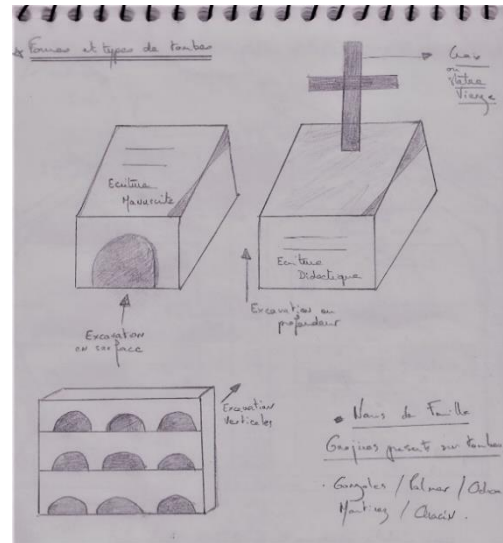 Formes et types de tombes
Croix
ou
statue
Vierge
Ecriture
Manuscrite
Ecriture
Didactique
Excavation
en surface
Excavation en
profondeur
Excavation
verticales
Noms de Famille
Guajiros présents sur tombes
Gonzales / Palmar /
Martinez / Chacin